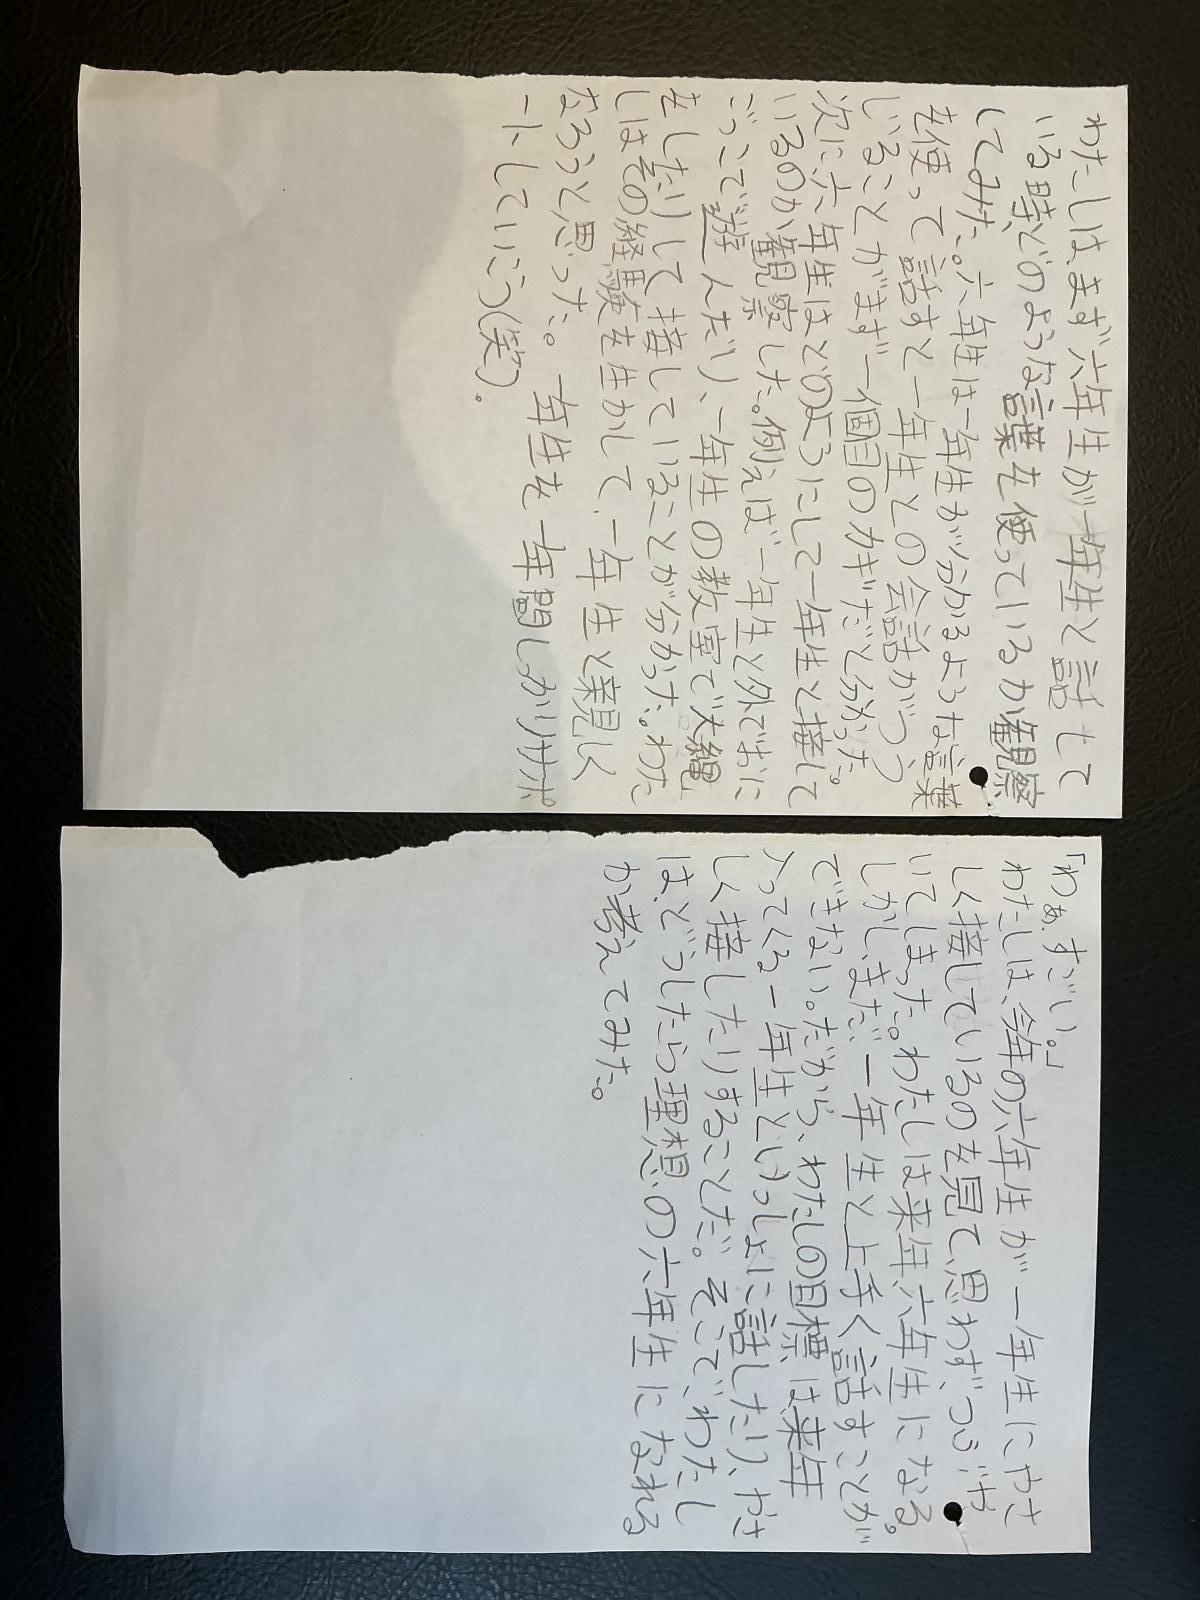 わたしは、まず六年生が一年生と話して
いる時、どのような言葉を使っているか観察
してみた。六年生は一年生が分かるような言葉
を使って話すと一年生との会話がつう
じることがまず一個目のカギだと分かった。
次に六年生はどのようにして一年生と接して
いるのか観察した。例えば一年生と外でおに
ごっこで遊んだり、一年生の教室で大縄
をしたりして接していることが分かった。わた
しはその経験を生かして、一年生と親しく
なろうと思った。一年生を一年間しっかりサポ
ートしていこう(笑)。
「わぁ、すごい。」
わたしは、今年の六年生が一年生にやさ
しく接しているのを見て、思わず、つぶや
いてしまった。わたしは来年、六年生になる。
しかし、まだ一年生と上手く話すことが
できない。だから、わたしの目標は、来年
入ってくる一年生といっしょに話したり、やさ
しく接したりすることだ。そこで、わたし
は、どうしたら理想の六年生になれる
か考えてみた。